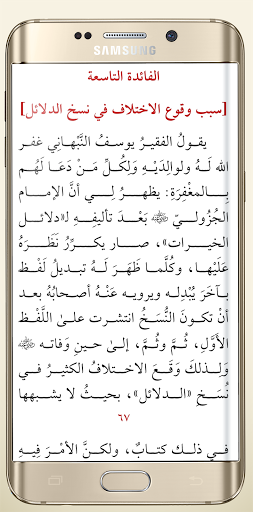 SAMSUNG
الفائدة التاسعة
[سبب وقوع الاختلاف في نسخ الدلائل]
يقولُ الفقيرُ يوسفُ النَّبْهاني غفر
الله لَهُ ولوالِدَيْهِ وَلِكُلِّ مَنْ دَعَا لَهُم
بِالمغْفِرَةِ: يظهرُ لِي أنَّ الإمام
الجُزُوليَّ ﷺ بَعْدَ تأليفِهِ لـ«دلائل
الخيرات»، صار يكرِّرُ نَظَرَهُ
عَلَيْها، وكُلَّما ظَهَرَ لَهُ تبديلُ لَفْظٍ
بآخَرَ يُبْدِله ويرويه عَنْهُ أصحابُهُ بعد
أنْ تكونَ النُّسَخُ انتشرت على اللَّفْظِ
الأوَّلِ، ثمَّ وثُمَّ، إلى حينِ وَفاته
وَلِذلكَ وَقَعَ الاختلافُ الكثيرُ في
نُسَخِ «الدلائل»، بحيثُ لا يشبهها
٦٧
في ذلك كتابٌ، ولكنَّ الأمْرَ فِيهِ